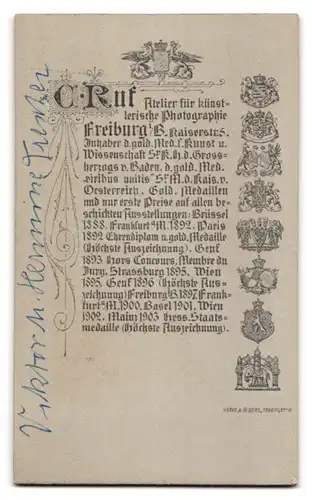 C. Ruf
Atelier für künst-
lerische Photographie
Freiburg i/B. Kaiserstr. 5.
Inhaber d. gold. Med. f. Kunst u.
Wissenschaft Sr. K. H. d. Gross-
herzogs v. Baden, d. gold. Med.
viribus unitis Sr. M. d. Kais. v.
Oesterreich. Gold. Medaillen
und nur erste Preise auf allen be-
schickten Ausstellungen: Brüssel
1888. Frankfurt a/M. 1892. Paris
1892 Ehrendiplom u. gold. Medaille
(höchste Auszeichnung). Genf
1893 Hors Concours, Membre du
Jury. Strassburg 1895. Wien
1895. Genf 1896 (höchste Aus-
zeichnung) Freiburg i/B. 1897. Frank-
furt a/M. 1900. Basel 1901. Wien
1902. Mainz 1903 Hess. Staats-
medaille (höchste Auszeichnung).
Viktor u. Hermine